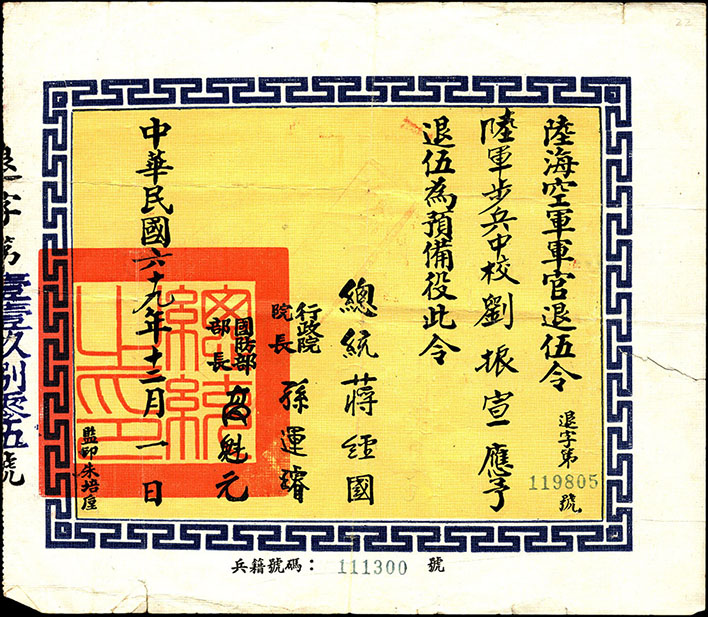 陸海空軍軍官退伍令
退字第
119805
號
陸軍步兵中校劉振宣應予
退伍為預備役此令
總統 蔣經國
行政院
院長 孫運璿
國防部
部長 高魁元
中華民國六十九年十二月一日
監印朱培
總統之印
退字第壹壹玖捌零伍號
兵籍號碼： 111300 號
22